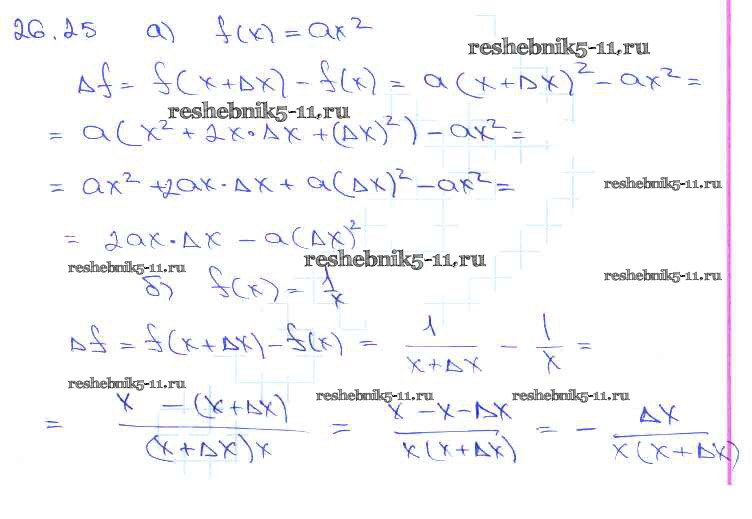 26.25 а) f(x) = ax²
reshebnik5-11.ru
Δf = f(x+Δx) - f(x) = a(x+Δx)² - ax² =
reshebnik5-11.ru
= a(x² + 2x·Δx + (Δx)²) - ax² =
= ax² + 2ax·Δx + a(Δx)² - ax² =
reshebnik5-11.ru
= 2ax·Δx - a(Δx)²
reshebnik5-11.ru
reshebnik5-11.ru
б) f(x) = 1/x
reshebnik5-11.ru
Δf = f(x+Δx) - f(x) = 1/(x+Δx) - 1/x =
reshebnik5-11.ru
reshebnik5-11.ru
reshebnik5-11.ru
= (x - (x+Δx))/((x+Δx)x) = (x-x-Δx)/(x(x+Δx)) = - Δx/(x(x+Δx))